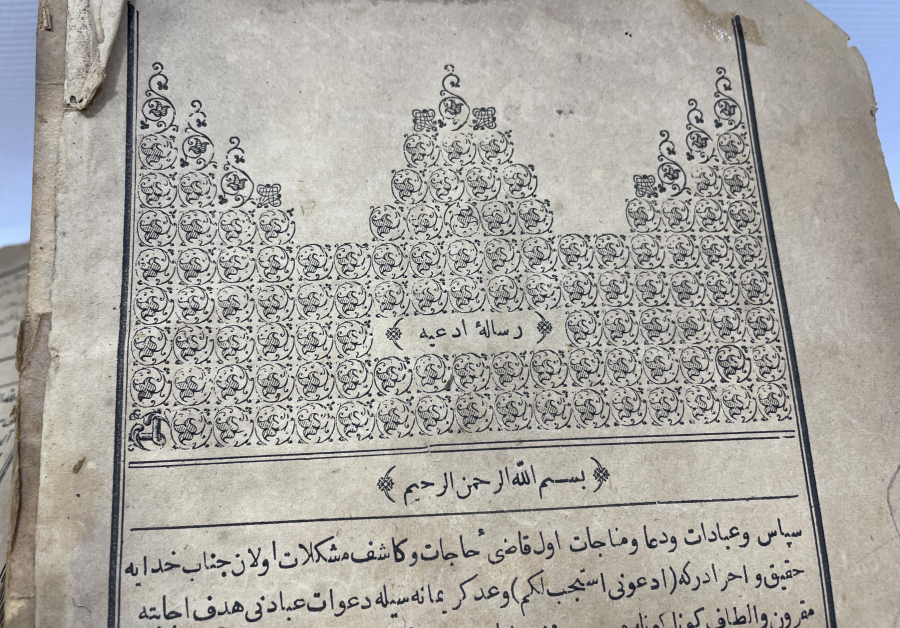 رسالۀ ادعیه
بسم الله الرحمن الرحیم
سپاس و عبادات ودعا ومناجات اول قاضئ حاجات وكاشف مشكلات اولان جناب خدایه
حقیق و احرا دركه (ادعونی استجب لكم) وعد كریمانه سیله دعوات عبادنی هدف اجابته
مقرون والطاف